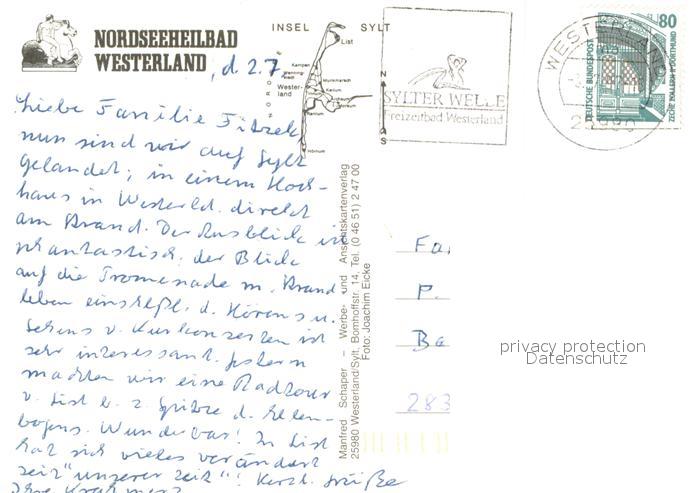 NORDSEEHEILBAD
WESTERLAND
, d. 2.7.
Liebe Familie
nun sind wir auf Sylt
gelandet; in einem Hoch-
haus in Westerld. direkt
am Strand. Der Ausblick ist
phantastisch; der Blick
auf die Promenade m. Strand
leben einschl. d. Hörens u.
Sehens v. Kurkonzerten ist
sehr interessant. Gestern
machten wir eine Radtour
v. List b. z. Spitze d. Ellen-
bogens. Wunderbar! In List
hat sich vieles verändert
seit "unserer Zeit"! Herzl. Grüße
Ihre
INSEL SYLT
List
Kampen
Wester-
land
Munkmarsch
Keitum
Rantum
Hörnum
N
S
SYLTER WELLE
Freizeitbad Westerland
WESTERLAND
25980
80
DEUTSCHE BUNDESPOST
ZECHE ZOLLERN II · DORTMUND
Manfred Schaper – Werbe- und Ansichtskartenverlag
25980 Westerland/Sylt, Bomhoffstr. 14, Tel. (0 46 51) 2 47 00
Foto: Joachim Eicke
Fa.
P.
Ba
283
privacy protection
Datenschutz